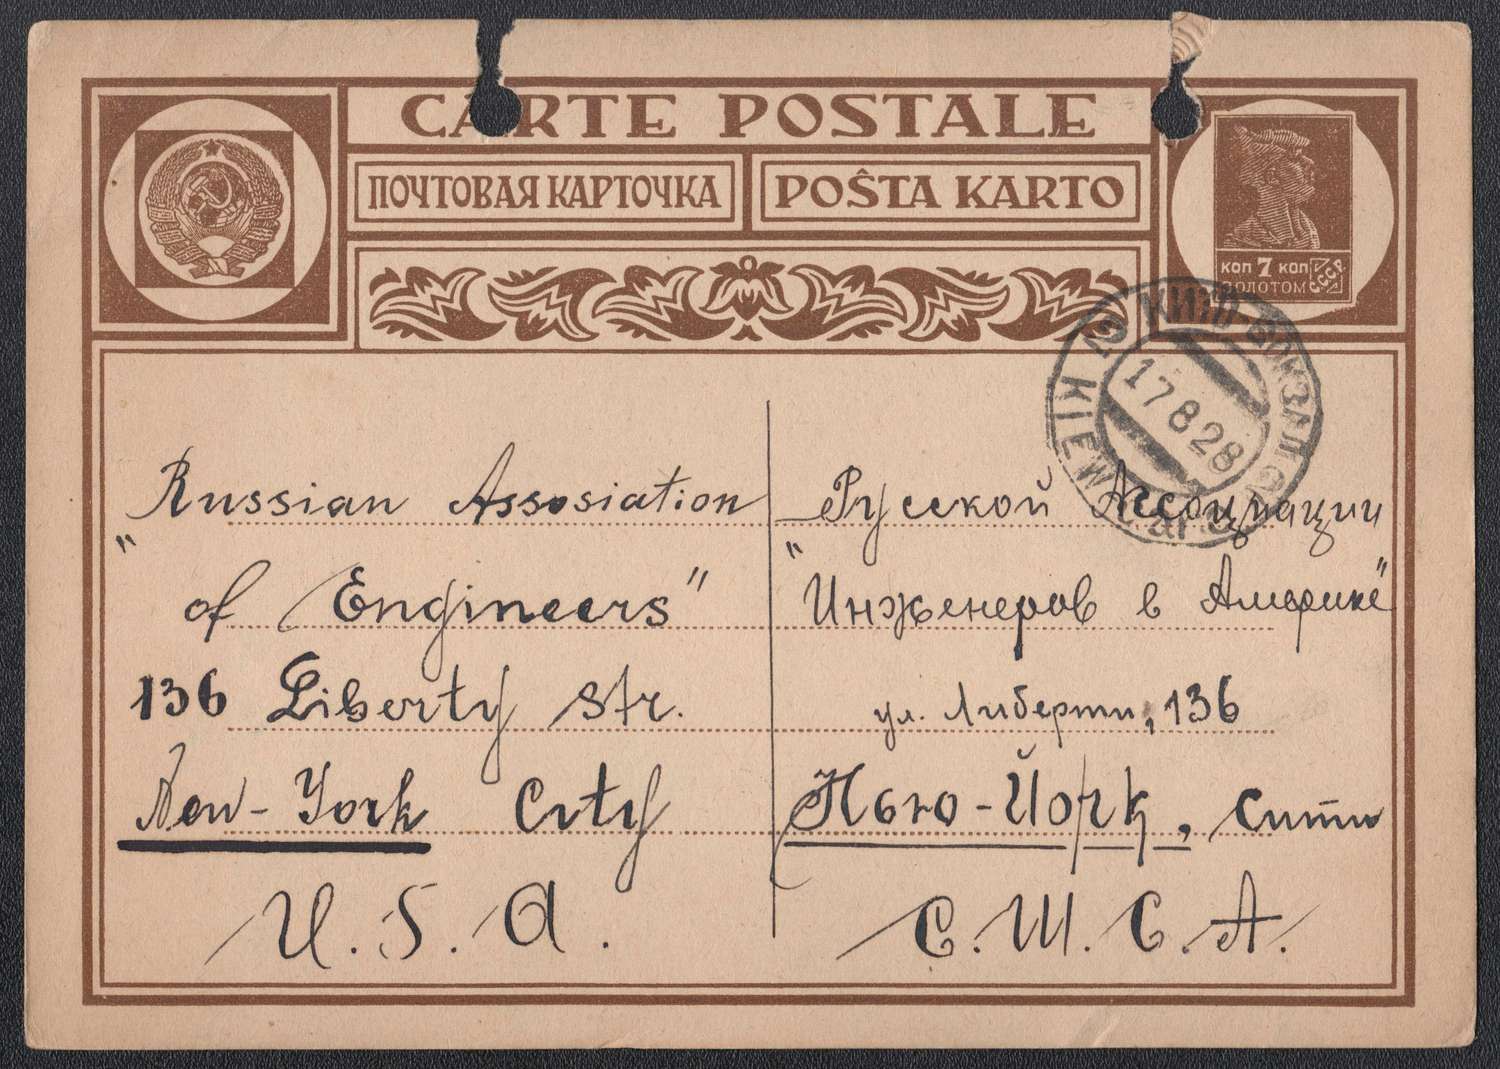 CARTE POSTALE
ПОЧТОВАЯ КАРТОЧКА
POŜTA KARTO
КОП 7 КОП
ЗОЛОТОМ
СССР
2 КИЇВ-ВОКЗАЛ
17 8 28
KIEW GARE
Russian Assosiation
"of Engineers"
136 Liberty Str.
New-York City
U.S.A.
Русской Ассоциации
"Инженеров в Америке"
ул. Либерти, 136
Нью-Йорк, Сити
С.Ш.С.А.